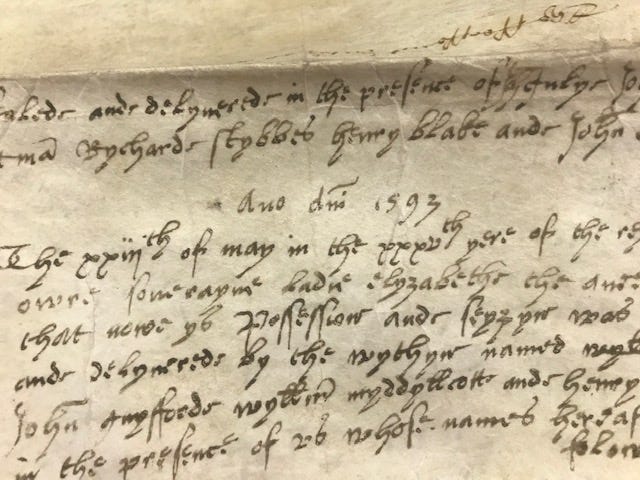 ande delyverede in the presence of
Rycharde stybbes henry blake ande John
Ano dm̄ 1593
The xxiijth of may in the xxxvth yere of the re
owre soverayne ladie elyzabethe the
that nowe ys Possession ande seyzyn was
ande delyverede by the wythyn named
John gnyfforde wyllm̄ myddyllcott ande henry
in the presence of vs whose names hereaf
folow